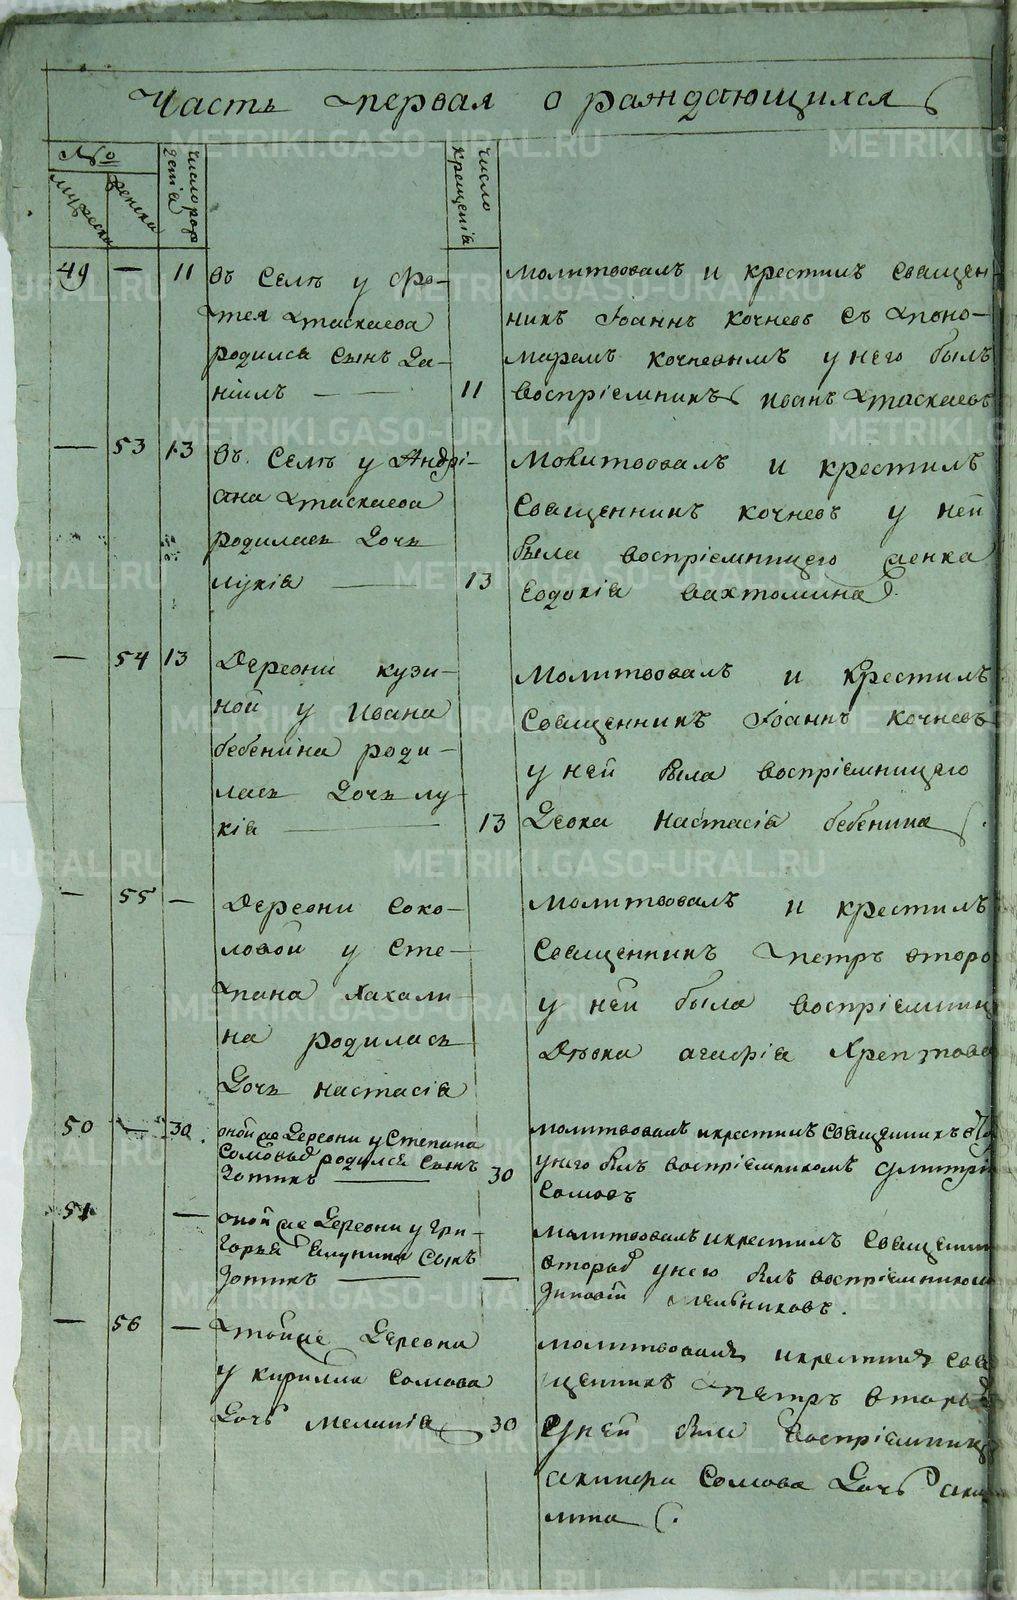 Часть первая о раждающихся
№
мужеска
женска
число рож
дения
число
крещенія
49 — 11 Въ Селѣ у Фо-
тея Таскаева
родился Сынъ Да-
ніилъ — 11
молитвовалъ и крестилъ Священ-
никъ Іоаннъ Кочневъ Съ Поно-
маремъ Кочневымъ у него былъ
воспріемникъ Иванъ Таскаевъ
— 53 13 Въ Селѣ у Андрі-
ана Таскаева
родилась Дочь
Лукія — 13
Молитвовалъ и крестилъ
Священникъ Кочневъ у ней
была воспріемницею
Евдокія Вахтомина
— 54 13 Деревни Кузи-
ной у Ивана
Бебенина роди-
лась Дочь Лу-
кія — 13
Молитвовалъ и Крестилъ
Священникъ Іоаннъ Кочневъ
у ней была воспріемницею
Девка Настасія Бебенина
— 55 — Деревни Соко-
ловой у Сте-
пана Лахали
на родилась
Дочь Настасія
молитвовалъ и крестилъ
Священникъ Петръ Второ
у ней была воспріемниц
Дѣвка
50 — 30 оной же Деревни у Степана
Сомова родился Сынъ
Зотикъ — 30
молитвовалъ и крестилъ Священникъ
у него былъ воспріемникомъ Дмитрій
Сомовъ
51 — оной же Деревни у Гри-
горья Сынъ
Зотикъ — —
молитвовалъ и крестилъ Священни
Второв у него былъ воспріемником
Зиновій Мельниковъ.
— 56 — Той же Деревни
у Кирилла Сомова
Дочь Меланія 30
молитвовалъ и крестилъ Свя
щенникъ Петръ Второв
У ней была воспріемниц
Сомова Дочь
METRIKI.GASO-URAL.RU